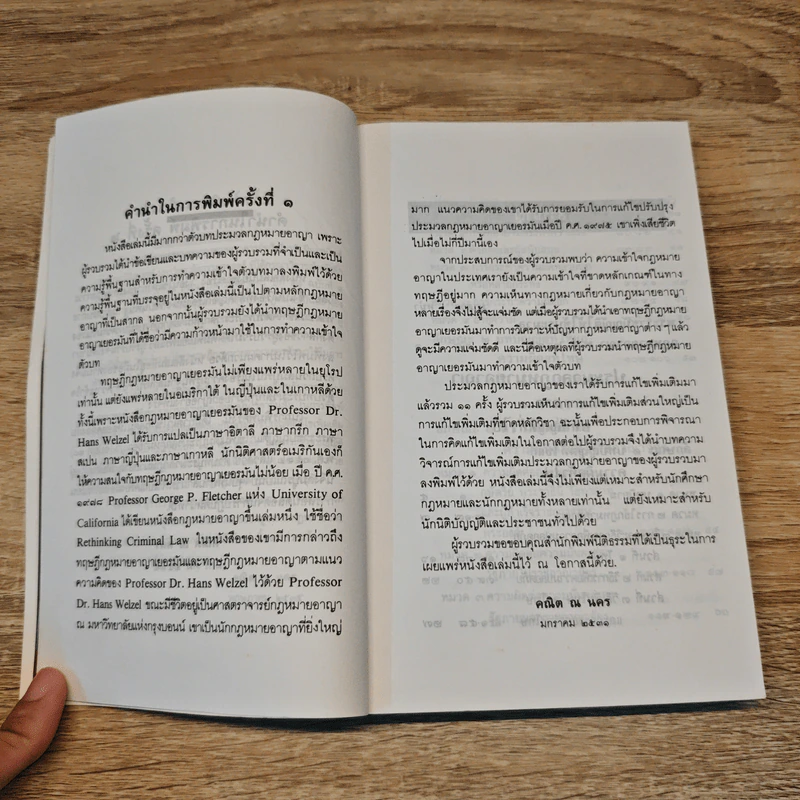 คำนำในการพิมพ์ครั้งที่ ๑
หนังสือเล่มนี้มีมากกว่าตัวบทประมวลกฎหมายอาญา เพราะ
ผู้รวบรวมได้นำข้อเขียนและบทความของผู้รวบรวมที่จำเป็นและเป็น
ความรู้พื้นฐานสำหรับการทำความเข้าใจตัวบทมาลงพิมพ์ไว้ด้วย
ความรู้พื้นฐานที่บรรจุอยู่ในหนังสือเล่มนี้เป็นไปตามหลักกฎหมาย
อาญาที่เป็นสากล นอกจากนั้นผู้รวบรวมยังได้นำทฤษฎีกฎหมาย
อาญาเยอรมันที่ได้ชื่อว่ามีความก้าวหน้ามาใช้ในการทำความเข้าใจ
ตัวบท
ทฤษฎีกฎหมายอาญาเยอรมันไม่เพียงแพร่หลายในยุโรป
เท่านั้น แต่ยังแพร่หลายในอเมริกาใต้ ในญี่ปุ่นและในเกาหลีด้วย
ทั้งนี้เพราะหนังสือกฎหมายอาญาเยอรมันของ Professor Dr.
Hans Welzel ได้รับการแปลเป็นภาษาอิตาลี ภาษากรีก ภาษา
สเปน ภาษาญี่ปุ่นและภาษาเกาหลี นักนิติศาสตร์อเมริกันเองก็
ให้ความสนใจกับทฤษฎีกฎหมายอาญาเยอรมันไม่น้อย เมื่อ ปี ค.ศ.
๑๙๗๘ Professor George P. Fletcher แห่ง University of
California ได้เขียนหนังสือกฎหมายอาญาขึ้นเล่มหนึ่ง ใช้ชื่อว่า
Rethinking Criminal Law ในหนังสือของเขามีการกล่าวถึง
ทฤษฎีกฎหมายอาญาเยอรมันและทฤษฎีกฎหมายอาญาตามแนว
ความคิดของ Professor Dr. Hans Welzel ไว้ด้วย Professor
Dr. Hans Welzel ขณะมีชีวิตอยู่เป็นศาสตราจารย์กฎหมายอาญา
ณ มหาวิทยาลัยแห่งกรุงบอนน์ เขาเป็นนักกฎหมายอาญาที่ยิ่งใหญ่
มาก แนวความคิดของเขาได้รับการยอมรับในการแก้ไขปรับปรุง
ประมวลกฎหมายอาญาเยอรมันเมื่อปี ค.ศ. ๑๙๗๕ เขาเพิ่งเสียชีวิต
ไปเมื่อไม่กี่ปีมานี้เอง
จากประสบการณ์ของผู้รวบรวมพบว่า ความเข้าใจกฎหมาย
อาญาในประเทศเรายังเป็นความเข้าใจที่ขาดหลักเกณฑ์ในทาง
ทฤษฎีอยู่มาก ความเห็นทางกฎหมายเกี่ยวกับกฎหมายอาญา
หลายเรื่องจึงไม่สู้จะแจ่มชัด แต่เมื่อผู้รวบรวมได้นำเอาทฤษฎีกฎหมาย
อาญาเยอรมันมาทำการวิเคราะห์ปัญหากฎหมายอาญาต่าง ๆ แล้ว
ดูจะมีความแจ่มชัดดี และนี่คือเหตุผลที่ผู้รวบรวมนำทฤษฎีกฎหมาย
อาญาเยอรมันมาทำความเข้าใจตัวบท
ประมวลกฎหมายอาญาของเราได้รับการแก้ไขเพิ่มเติมมา
แล้วรวม ๑๑ ครั้ง ผู้รวบรวมเห็นว่าการแก้ไขเพิ่มเติมส่วนใหญ่เป็น
การแก้ไขเพิ่มเติมที่ขาดหลักวิชา ฉะนั้นเพื่อประกอบการพิจารณา
ในการคิดแก้ไขเพิ่มเติมในโอกาสต่อไปผู้รวบรวมจึงได้นำบทความ
วิจารณ์การแก้ไขเพิ่มเติมประมวลกฎหมายอาญาของผู้รวบรวมมา
ลงพิมพ์ไว้ด้วย หนังสือเล่มนี้จึงไม่เพียงแต่เหมาะสำหรับนักศึกษา
กฎหมายและนักกฎหมายทั้งหลายเท่านั้น แต่ยังเหมาะสำหรับ
นักนิติบัญญัติและประชาชนทั่วไปด้วย
ผู้รวบรวมขอขอบคุณสำนักพิมพ์นิติธรรมที่ได้เป็นธุระในการ
เผยแพร่หนังสือเล่มนี้ไว้ ณ โอกาสนี้ด้วย.
คณิต ณ นคร
มกราคม ๒๕๓๑